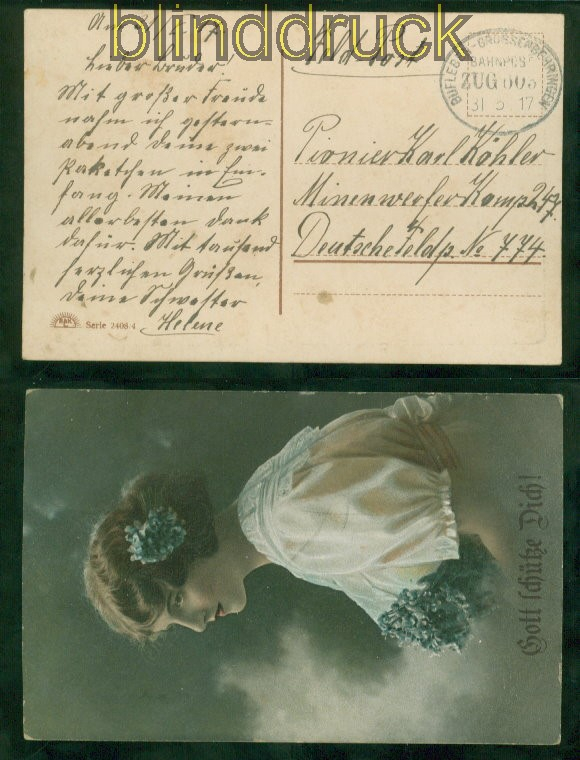 blinddruck
Lieber Bruder!
Mit großer Freude
nahm ich gestern-
abend deine zwei
Paketchen in Em-
fang. Meinen
allerbesten Dank
dafür. Mit tausend
herzlichen Grüßen,
deine Schwester
Helene
Serie 2408/4
Feld Post
BUFLEBEN-GROSSENBEHRINGEN
BAHNPOST
ZUG 003
31 5 17
Pionier Karl Köhler
Minenwerfer Komp 247.
Deutsche Feldp. No 774.
Gott schütze Dich!